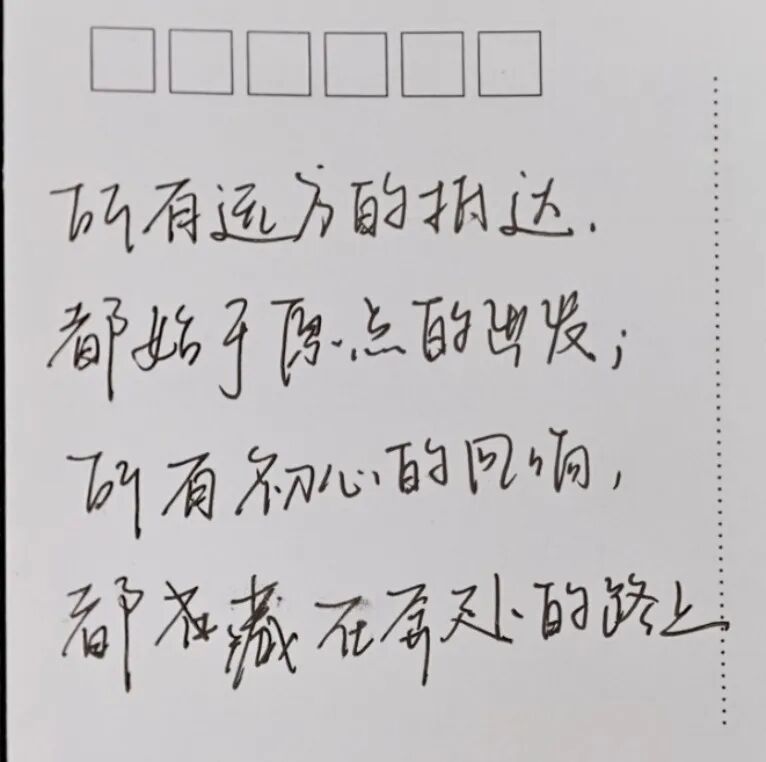 所有远方的抵达.
都始于原点的出发;
所有初心的回响,
都在藏在奔赴的路上